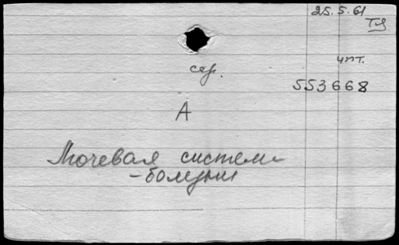 25.5.61
ТЯ
сер.
чит.
553668
А
Мочевая система
-болезни